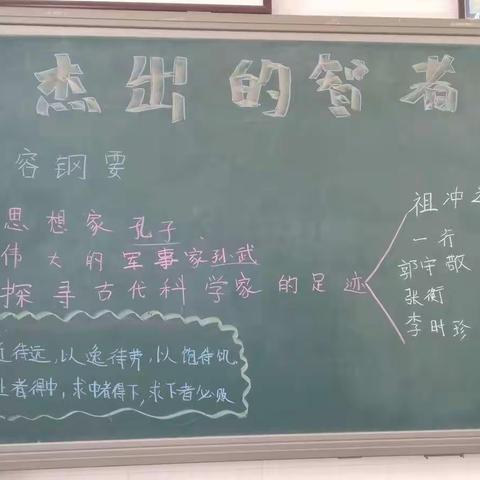 杰出的智者
容钢要
思想家 孔子、
伟大的军事家孙武
探寻古代科学家的足迹
祖冲之
一行
郭守敬
张衡
李时珍
近待远,以逸待劳,以饱待饥。
上者得中,求中者得下,求下者必败